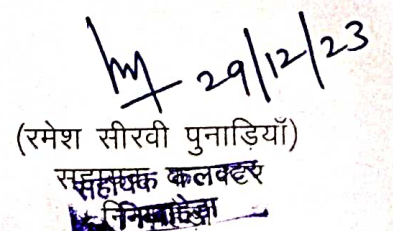 29/12/23
(रमेश सीरवी पुनाड़ियाँ)
सहायक कलक्टर
निम्बाहेड़ा